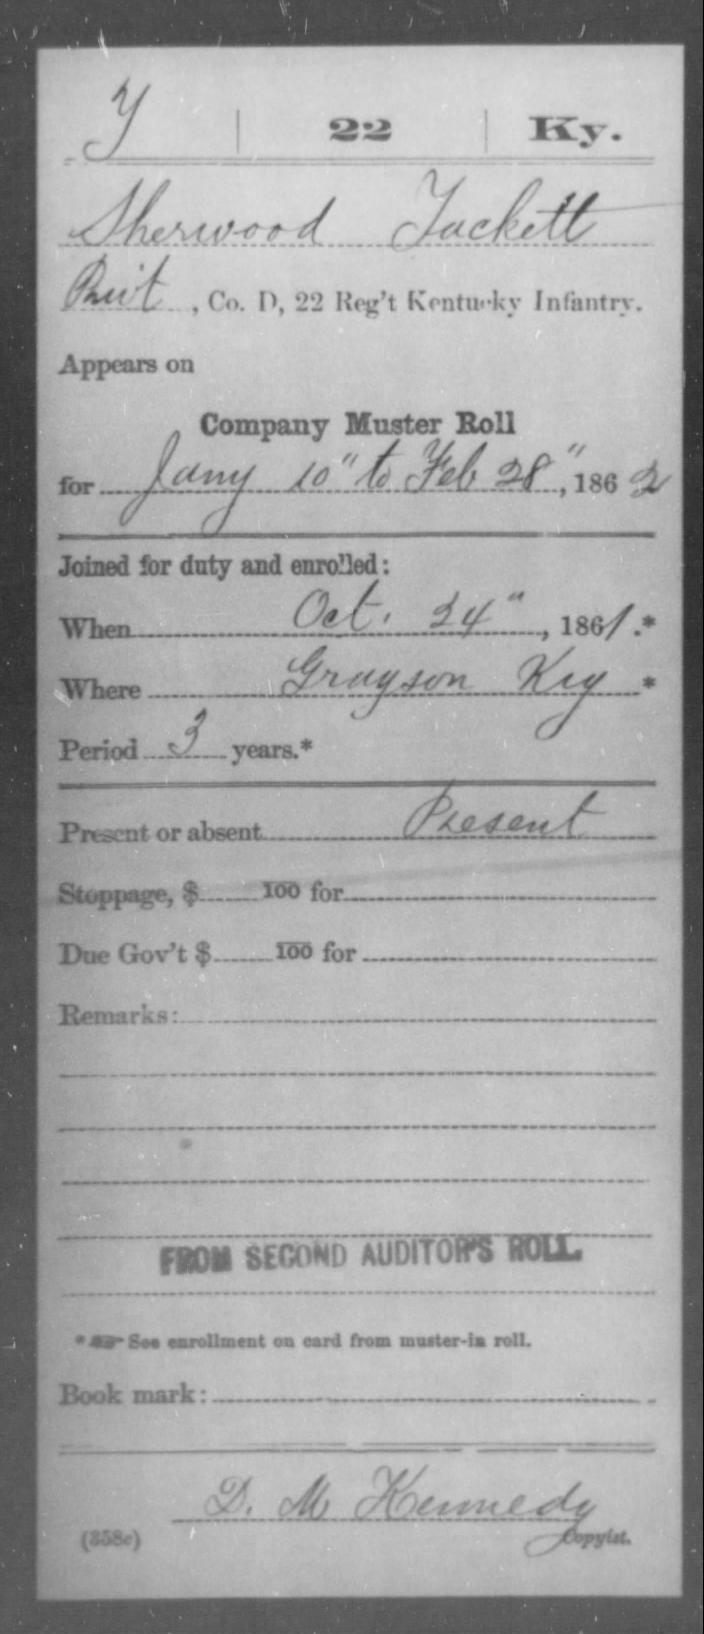 T 22 Ky.
Sherwood Tackett
Privt, Co. D, 22 Reg't Kentucky Infantry.
Appears on
Company Muster Roll
for Jany 10" to Feb 28", 1862
Joined for duty and enrolled:
When Oct. 24", 1861.*
Where Grayson Ky *
Period 3 years.*
Present or absent Present
Stoppage, $ 100 for
Due Gov't $ 100 for
Remarks:
FROM SECOND AUDITOR'S ROLL.
* ☞ See enrollment on card from muster-in roll.
Book mark:
D. M Kennedy
(358c) Copyist.